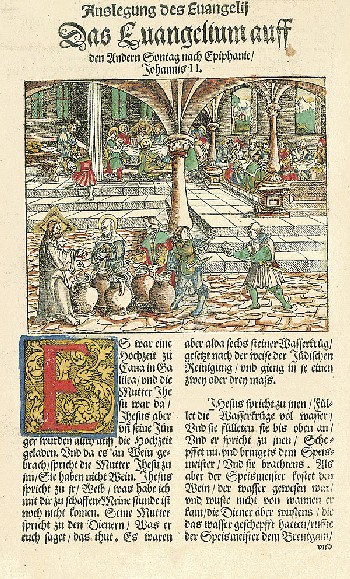 Auslegung des Euangelij
Das Euangelium auff
den Andern Sontag nach Epiphanie/
Johannis II.
ES war eine
Hochzeit zu
Cana in Ga
lilea/vnd die
Mutter Jhe
su war da/
Jhesus aber
vñ seine Jün
ger wurden auch auff die Hochzeit
geladen. Vnd da es an Wein ge-
brach/spricht die Mutter Jhesu zu
jm/Sie haben nicht Wein. Jhesus
spricht zu jr/Weib/was habe ich
mit dir zu schaffen? Meine stunde ist
noch nicht komen. Seine Mutter
spricht zu den Dienern/Was er
euch saget/das thut. Es waren
aber alda sechs steiner Wasserkrüg/
gesetzt nach der weise der Jüdischen
Reinigung/vnd gieng in je einen
zwey oder drey mass.
Jhesus spricht zu jnen/Fül-
let die Wasserkrüge vol wasser/
Vnd sie fülleten sie bis oben an/
Vnd er spricht zu jnen/Sche-
pffet nu/vnd bringets dem Speis-
meister/Vnd sie brachtens. Als
aber der Speismeister kostet den
Wein/der wasser gewesen war/
vnd wuste nicht von wannen er
kam/die Diener aber wustens/die
das wasser geschepfft hatten/ruffte
der Speismeister dem Breutgam/
vnd